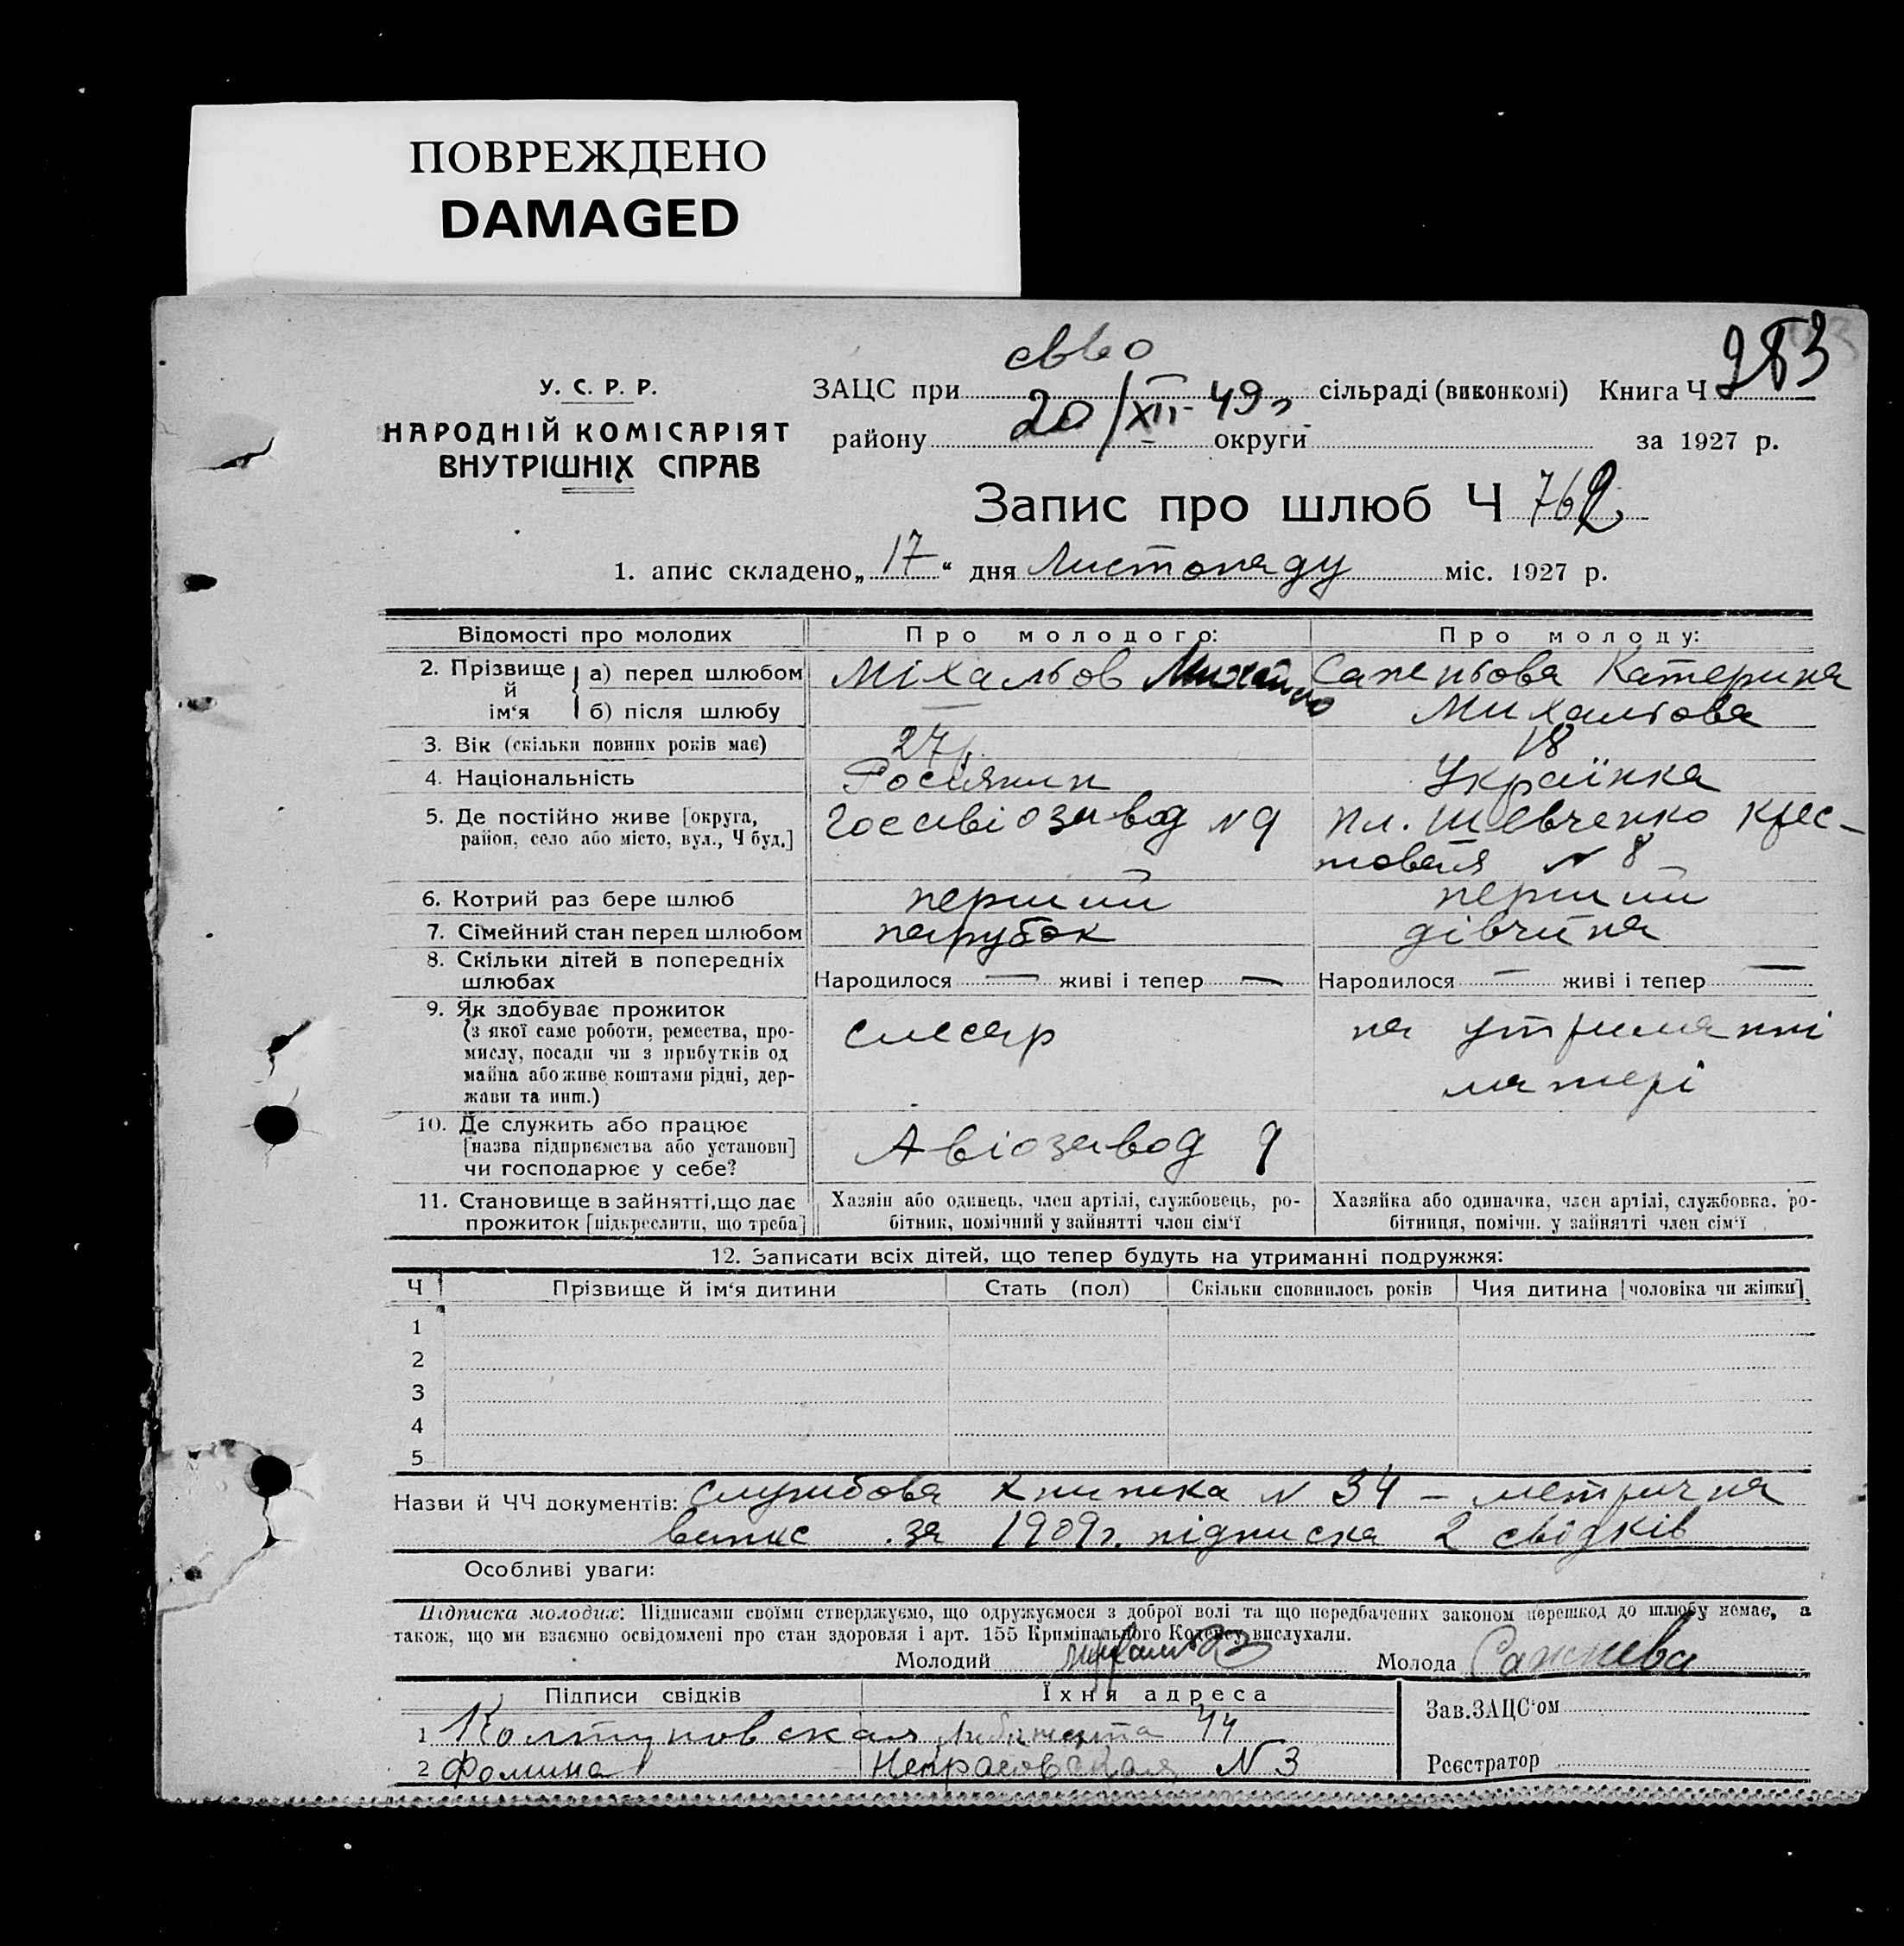 ПОВРЕЖДЕНО
DAMAGED
283
У. С. Р. Р.
НАРОДНІЙ КОМІСАРІЯТ
ВНУТРІШНІХ СПРАВ
ЗАЦС при сільраді (виконкомі) Книга Ч
20/XII-49г
району округи за 1927 р.
Запис про шлюб Ч 762
1. апис складено „17“ дня Листопаду міс. 1927 р.
Відомості про молодих Про молодого: Про молоду:
2. Прізвище й ім‘я а) перед шлюбом Міхальов Михайло Катерина
б) після шлюбу — Михальова
3. Вік (скільки повних років має) 27 18
4. Національність Росіянин Українка
5. Де постійно живе [округа, Госавіозавод N 9 пл. Шевченко Крес-
район, село або місто, вул., Ч буд.] товая N 8
6. Котрий раз бере шлюб перший перший
7. Сімейний стан перед шлюбом парубок дівчина
8. Скільки дітей в попередніх
шлюбах Народилося — живі і тепер — Народилося — живі і тепер —
9. Як здобуває прожиток
(з якої саме роботи, ремества, про- слесар на утриманні
мислу, посади чи з прибутків од
майна або живе коштами рідні, дер- матері
жави та инш.)
10. Де служить або працює
[назва підприємства або установи] Авіозавод 9
чи господарює у себе?
11. Становище в зайнятті, що дає Хазяін або одинець, член артілі, службовець, ро- Хазяйка або одиначка, член артілі, службовка, ро-
прожиток [підкреслити, що треба] бітник, помічний у зайнятті член сім‘ї бітниця, помічн. у зайнятті член сім‘ї
12. Записати всіх дітей, що тепер будуть на утриманні подружжя:
Ч Прізвище й ім‘я дитини Стать (пол) Скільки сповнилось років Чия дитина [чоловіка чи жінки]
1
2
3
4
5
Назви й ЧЧ документів: службова книжка N 34 – метрична
випис за 1909г. підписка 2 свідків
Особливі уваги:
Підписка молодих: Підписами своїми стверджуємо, що одружуємося з доброї волі та що передбачених законом перешкод до шлюбу немає, а
також, що ми взаємно освідомлені про стан здоровля і арт. 155 Кримінального Кодексу вислухали.
Молодий Молода
Підписи свідків Їхня адреса
Зав. ЗАЦС‘ом
1 Колтуновская Либкнехта 44
2 Фомина Некрасовская N 3
Реєстратор